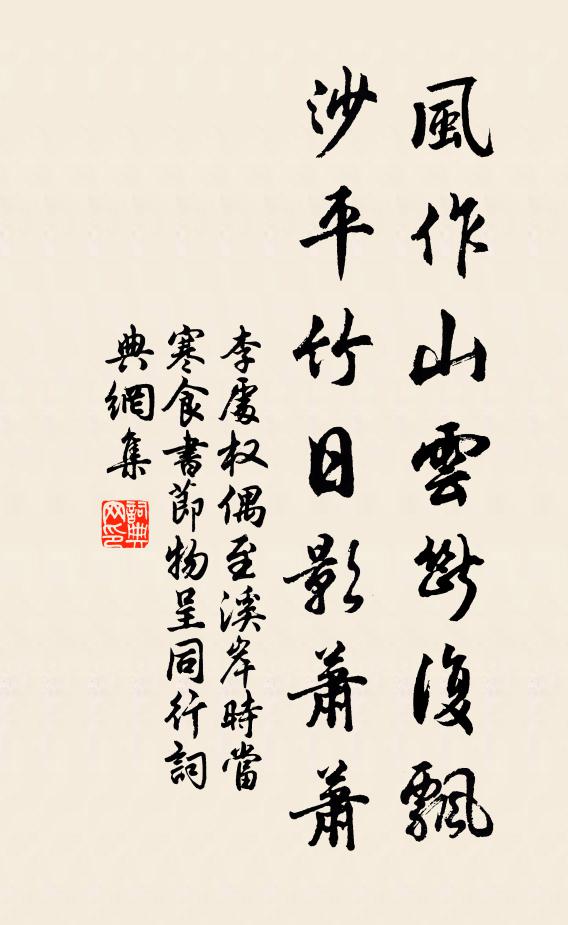 風作山雲斷復飄
沙平竹日影蕭蕭
李處权偶至溪岸時當
寒食書節物呈同行詞
典網集
詞典
网印